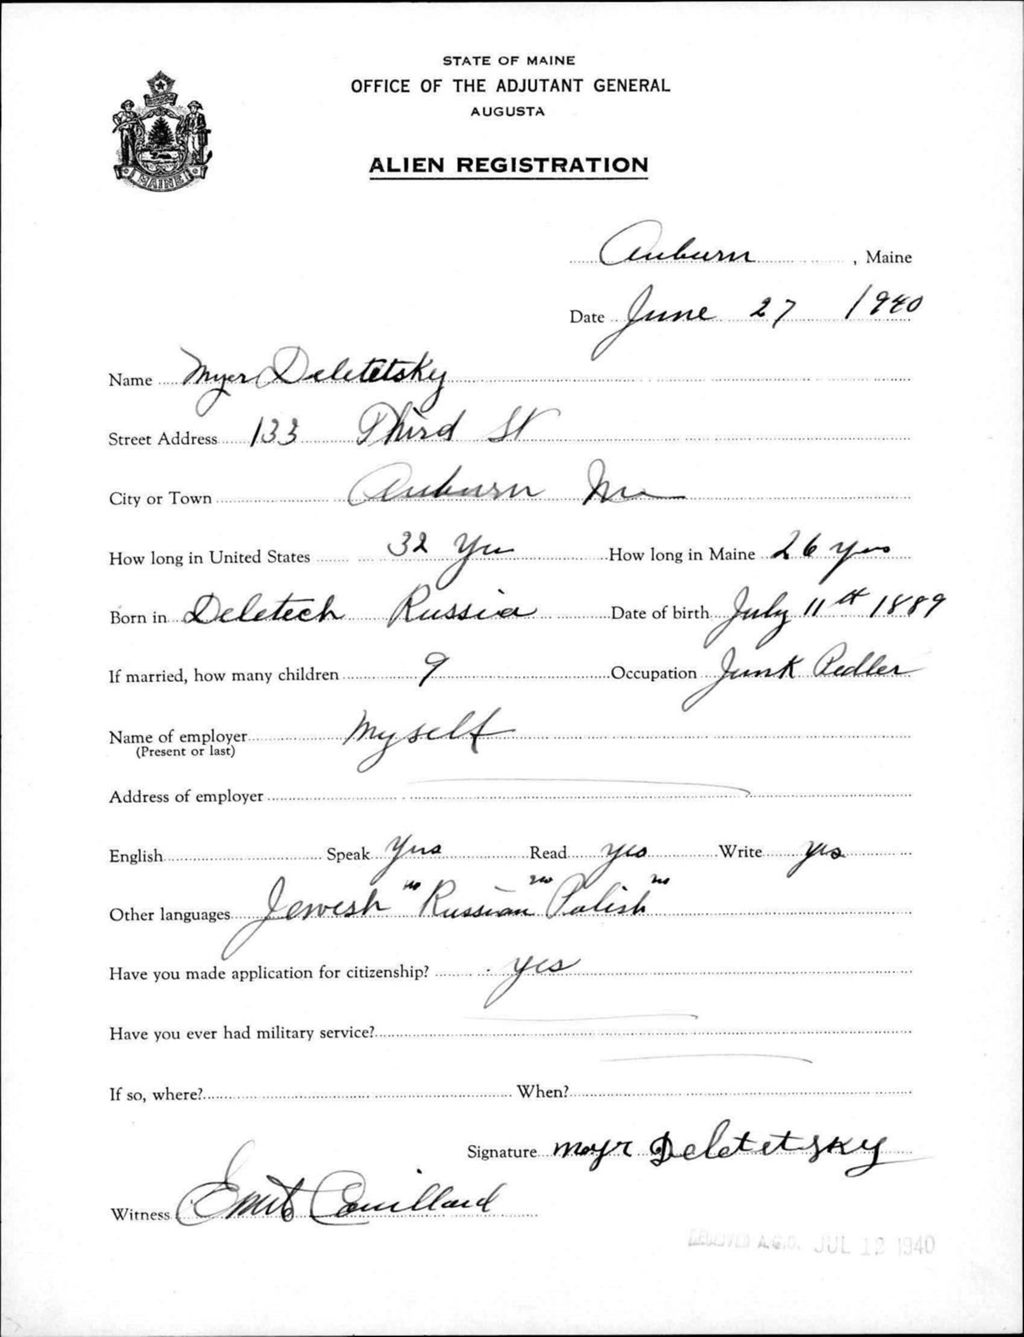 STATE OF MAINE
OFFICE OF THE ADJUTANT GENERAL
AUGUSTA
MAINE
ALIEN REGISTRATION
Auburn, Maine
Date June 27 1940
Name Myer Deletetsky
Street Address 133 Third St
City or Town Auburn Me
How long in United States 32 Yrs How long in Maine 26 yrs
Born in Deletech Russia Date of birth July 11th 1889
If married, how many children 9 Occupation Junk Pedler
Name of employer Myself
(Present or last)
Address of employer
English Speak Yes Read yes Write yes
Other languages Jewish " Russian " Polish "
Have you made application for citizenship? yes
Have you ever had military service?
If so, where? When?
Signature Deletetsky
Witness Couillard
RECEIVED A.G.O. JUL 12 1940